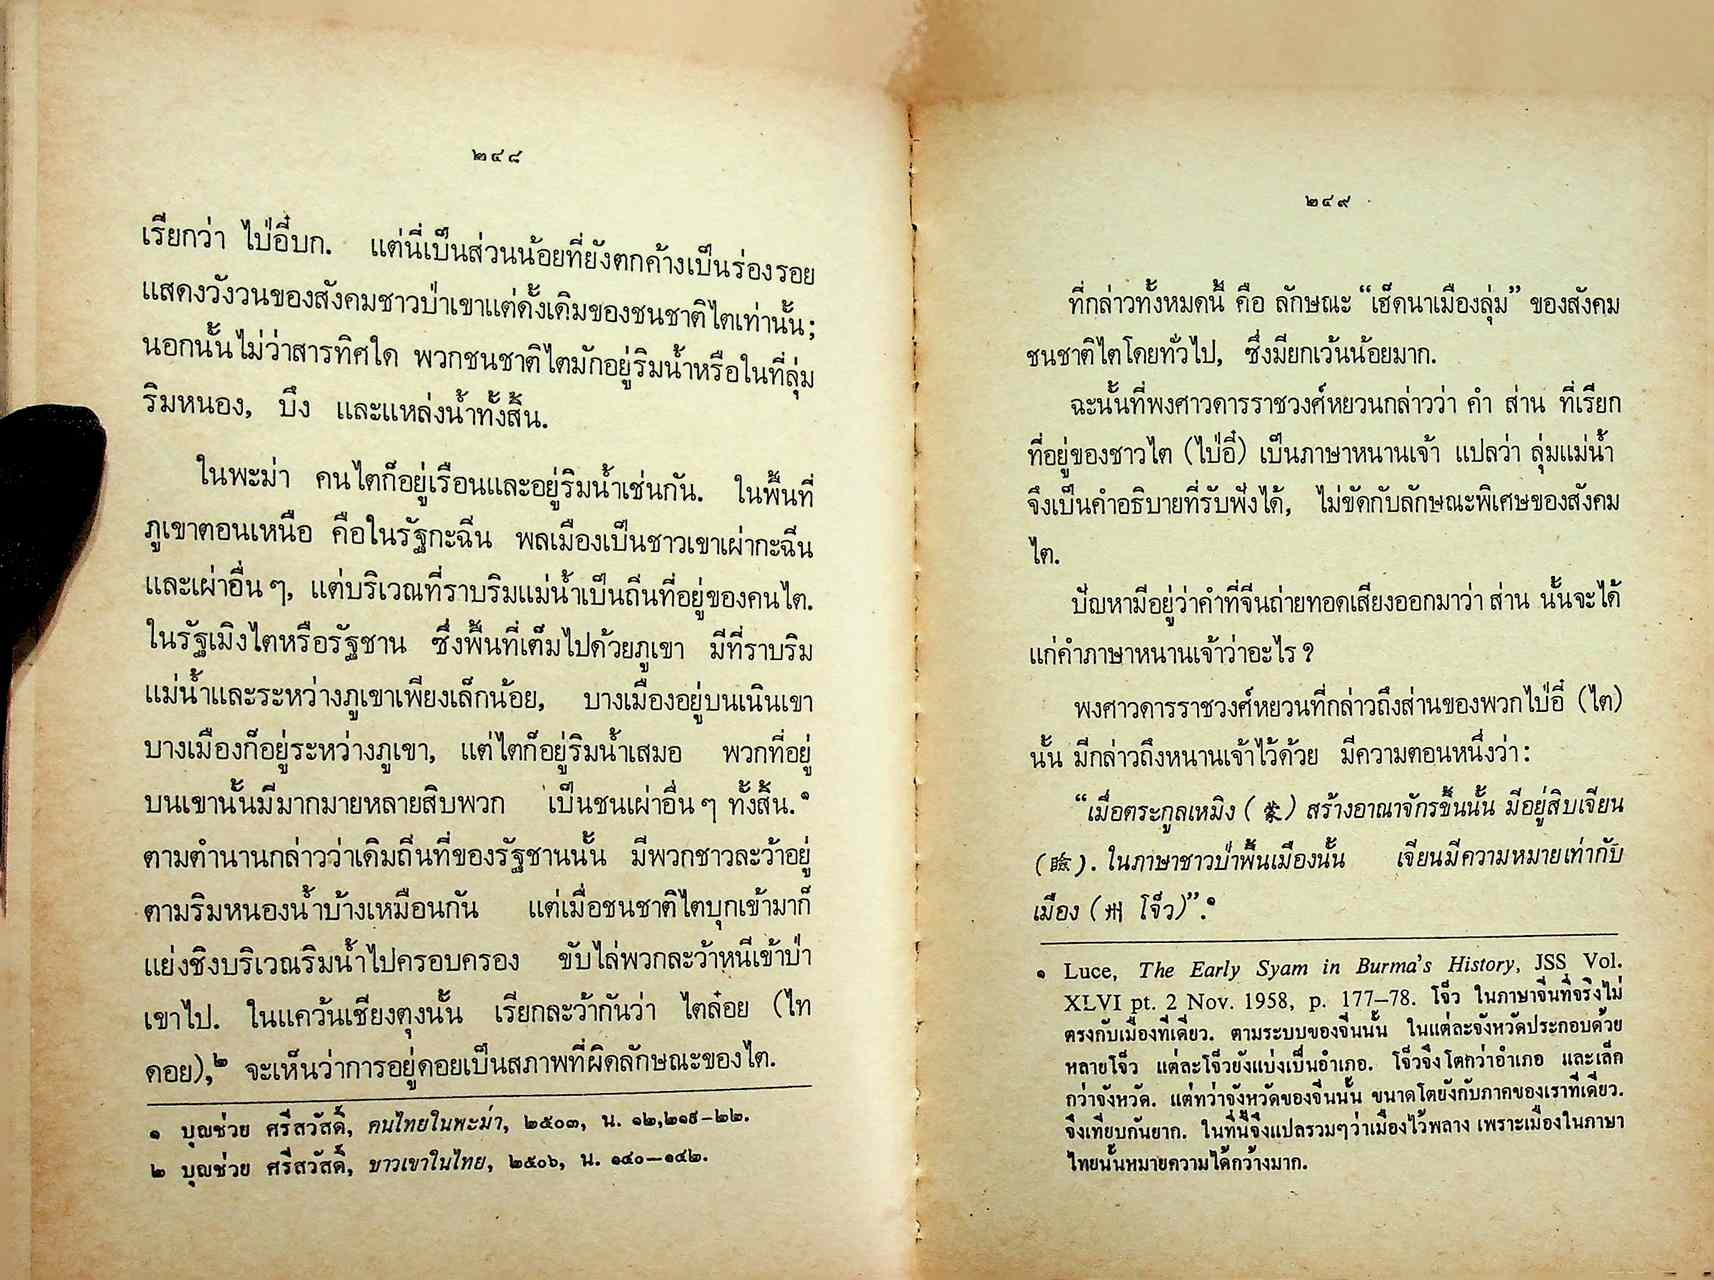 ๒๔๘
เรียกว่า ไป่อี๋บก. แต่นี่เป็นส่วนน้อยที่ยังตกค้างเป็นร่องรอย
แสดงวังวนของสังคมชาวป่าเขาแต่ดั้งเดิมของชนชาติไตเท่านั้น;
นอกนั้นไม่ว่าสารทิศใด พวกชนชาติไตมักอยู่ริมน้ำหรือในที่ลุ่ม
ริมหนอง, บึง และแหล่งน้ำทั้งสิ้น.
ในพะม่า คนไตก็อยู่เรือนและอยู่ริมน้ำเช่นกัน. ในพื้นที่
ภูเขาตอนเหนือ คือในรัฐกะฉีน พลเมืองเป็นชาวเขาเผ่ากะฉีน
และเผ่าอื่น ๆ, แต่บริเวณที่ราบริมแม่น้ำเป็นถิ่นที่อยู่ของคนไต.
ในรัฐเมิงไตหรือรัฐชาน ซึ่งพื้นที่เต็มไปด้วยภูเขา มีที่ราบริม
แม่น้ำและระหว่างภูเขาเพียงเล็กน้อย, บางเมืองอยู่บนเนินเขา
บางเมืองก็อยู่ระหว่างภูเขา, แต่ไตก็อยู่ริมน้ำเสมอ พวกที่อยู่
บนเขานั้นมีมากมายหลายสิบพวก เป็นชนเผ่าอื่น ๆ ทั้งสิ้น.๑
ตามตำนานกล่าวว่าเดิมถิ่นที่ของรัฐชานนั้น มีพวกชาวละว้าอยู่
ตามริมหนองน้ำบ้างเหมือนกัน แต่เมื่อชนชาติไตบุกเข้ามาก็
แย่งชิงบริเวณริมน้ำไปครอบครอง ขับไล่พวกละว้าหนีเข้าป่า
เขาไป. ในแคว้นเชียงตุงนั้น เรียกละว้ากันว่า ไตล๋อย (ไท
ดอย),๒ จะเห็นว่าการอยู่ดอยเป็นสภาพที่ผิดลักษณะของไต.
๑ บุญช่วย ศรีสวัสดิ์, คนไทยในพะม่า, ๒๕๐๓, น. ๑๒,๒๑๙–๒๒.
๒ บุญช่วย ศรีสวัสดิ์, ชาวเขาในไทย, ๒๕๐๖, น. ๑๔๐–๑๔๒.
๒๔๙
ที่กล่าวทั้งหมดนี้ คือ ลักษณะ “เฮ็ดนาเมืองลุ่ม” ของสังคม
ชนชาติไตโดยทั่วไป, ซึ่งมียกเว้นน้อยมาก.
ฉะนั้นที่พงศาวดารราชวงศ์หยวนกล่าวว่า คำ ส่าน ที่เรียก
ที่อยู่ของชาวไต (ไป่อี๋) เป็นภาษาหนานเจ้า แปลว่า ลุ่มแม่น้ำ
จึงเป็นคำอธิบายที่รับฟังได้, ไม่ขัดกับลักษณะพิเศษของสังคม
ไต.
ปัญหามีอยู่ว่าคำที่จีนถ่ายทอดเสียงออกมาว่า ส่าน นั้นจะได้
แก่คำภาษาหนานเจ้าว่าอะไร ?
พงศาวดารราชวงศ์หยวนที่กล่าวถึงส่านของพวกไป่อี๋ (ไต)
นั้น มีกล่าวถึงหนานเจ้าไว้ด้วย มีความตอนหนึ่งว่า :
“เมื่อตระกูลเหมิง ( 蒙 ) สร้างอาณาจักรขึ้นนั้น มีอยู่สิบเจียน
( 瞼 ). ในภาษาชาวป่าพื้นเมืองนั้น เจียนมีความหมายเท่ากับ
เมือง ( 州 โจ็ว)”.๑
๑ Luce, The Early Syam in Burma's History, JSS Vol.
XLVI pt. 2 Nov. 1958, p. 177–78. โจ็ว ในภาษาจีนที่จริงไม่
ตรงกับเมืองทีเดียว. ตามระบบของจีนนั้น ในแต่ละจังหวัดประกอบด้วย
หลายโจ็ว แต่ละโจ็วยังแบ่งเป็นอำเภอ. โจ็วจึงโตกว่าอำเภอ และเล็ก
กว่าจังหวัด. แต่ทว่าจังหวัดของจีนนั้น ขนาดโตยังกับภาคของเราทีเดียว.
จึงเทียบกันยาก. ในที่นี้จึงแปลรวมๆว่าเมืองไว้พลาง เพราะเมืองในภาษา
ไทยนั้นหมายความได้กว้างมาก.